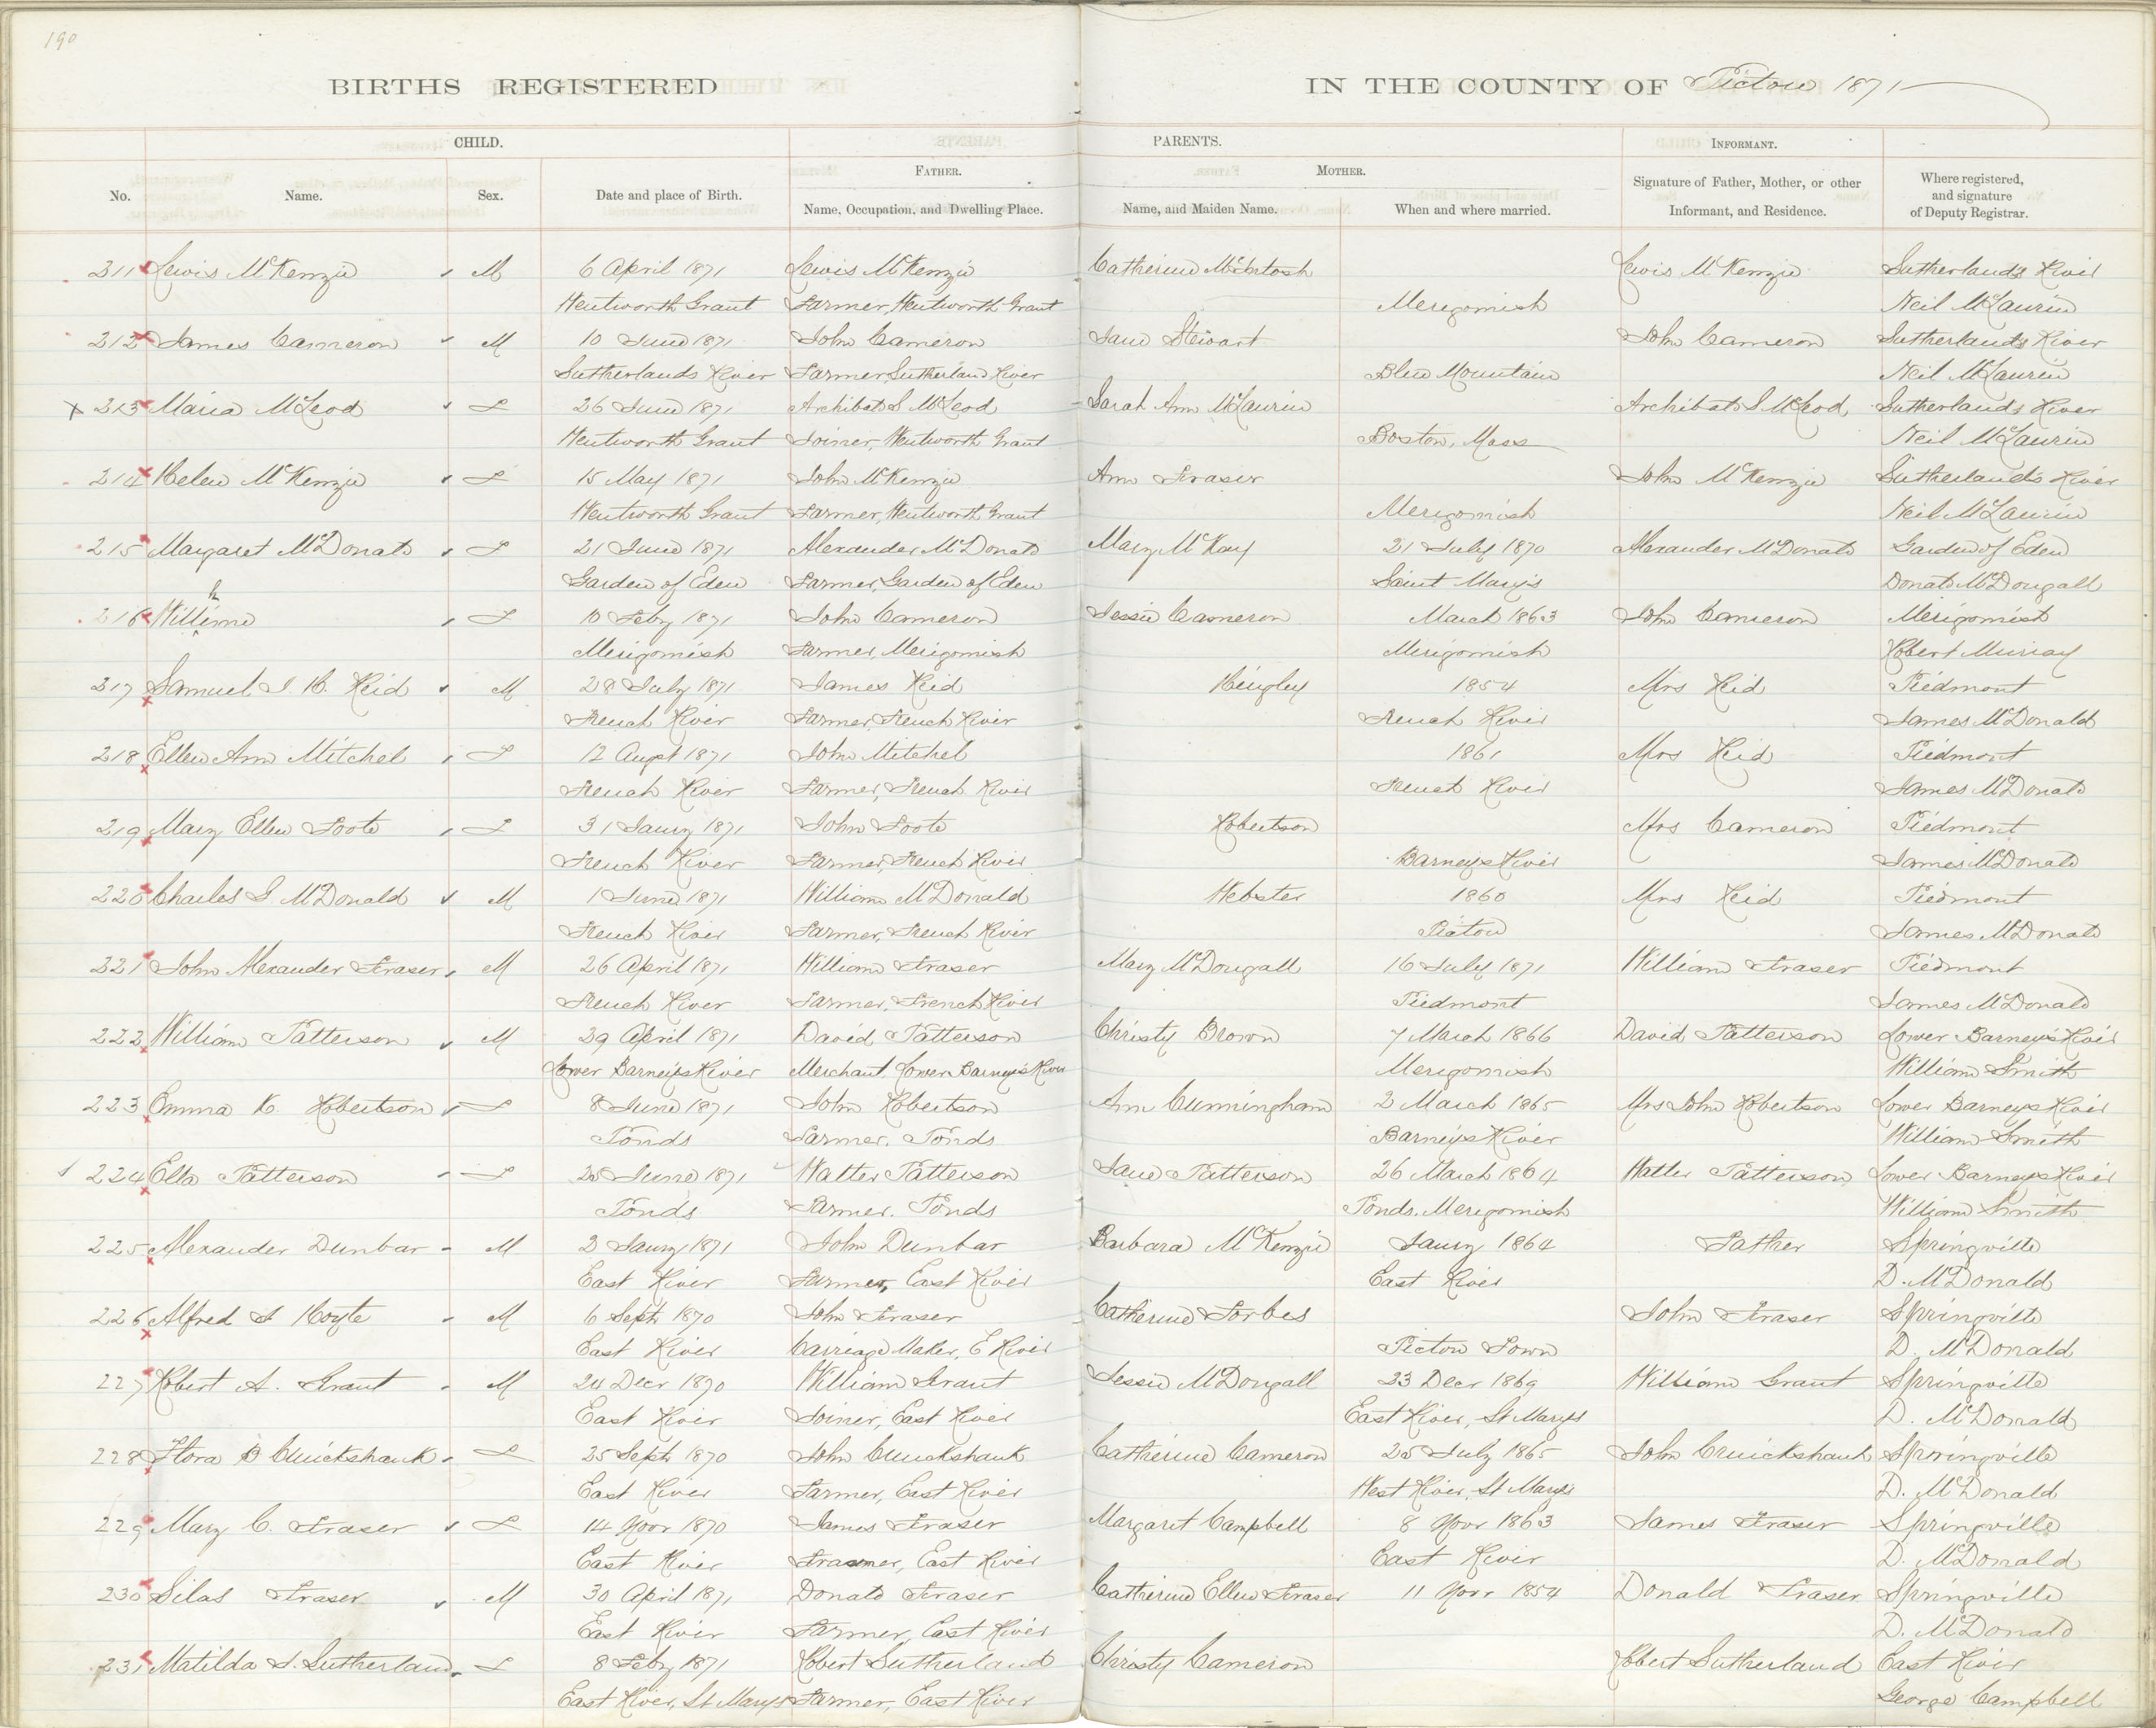 190
BIRTHS REGISTERED IN THE COUNTY OF Pictou 1871
CHILD. PARENTS. INFORMANT.
FATHER. MOTHER.
No. Name. Sex. Date and place of Birth. Name, Occupation, and Dwelling Place. Name, and Maiden Name. When and where married. Signature of Father, Mother, or other Informant, and Residence. Where registered, and signature of Deputy Registrar.
211 Lewis McKenzie M 6 April 1871 Lewis McKenzie Catherine McIntosh Lewis McKenzie Sutherlands River
Wentworth Grant Farmer, Wentworth Grant Merigomish Neil McLaurin
212 James Cameron M 10 June 1871 John Cameron Jane Stewart John Cameron Sutherlands River
Sutherlands River Farmer, Sutherland River Blue Mountain Neil McLaurin
x 213 Maria McLeod F 26 June 1871 Archibald S McLeod Sarah Ann McLaurin Archibald S McLeod Sutherlands River
Wentworth Grant Joiner, Wentworth Grant Boston, Mass Neil McLaurin
214 Helen McKenzie F 15 May 1871 John McKenzie Ann Fraser John McKenzie Sutherlands River
Wentworth Grant Farmer, Wentworth Grant Merigomish Neil McLaurin
215 Margaret McDonald F 21 June 1871 Alexander McDonald Mary McKay 21 July 1870 Alexander McDonald Garden of Eden
Garden of Eden Farmer, Garden of Eden Saint Mary's Donald McDougall
216 Willimh F 10 Feby 1871 John Cameron Jessie Cameron March 1863 John Cameron Merigomish
Merigomish Farmer, Merigomish Merigomish Robert Murray
217 Samuel J. H. Reid M 28 July 1871 James Reid Hingley 1854 Mrs Reid Piedmont
French River Farmer, French River French River James McDonald
218 Ellen Ann Mitchel F 12 Augt 1871 John Mitchel 1861 Mrs Reid Piedmont
French River Farmer, French River French River James McDonald
219 Mary Ellen Foote F 31 Jany 1871 John Foote Robertson Mrs Cameron Piedmont
French River Farmer, French River Barneys River James McDonald
220 Charles G McDonald M 1 June 1871 William McDonald Webster 1860 Mrs Reid Piedmont
French River Farmer, French River Pictou James McDonald
221 John Alexander Fraser M 26 April 1871 William Fraser Mary McDougall 16 July 1871 William Fraser Piedmont
French River Farmer, French River Piedmont James McDonald
222 William Patterson M 29 April 1871 David Patterson Christy Brown 7 March 1866 David Patterson Lower Barneys River
Lower Barneys River Merchant, Lower Barney's River Merigomish William Smith
223 Emma K. Robertson F 8 June 1871 John Robertson Ann Cunningham 2 March 1865 Mrs John Robertson Lower Barneys River
Ponds Farmer. Ponds Barneys River William Smith
224 Ella Patterson F 25 June 1871 Walter Patterson Jane Patterson 26 March 1864 Walter Patterson Lower Barneys River
Ponds Farmer. Ponds Ponds, Merigomish William Smith
225 Alexander Dunbar M 2 Jany 1871 John Dunbar Barbara McKenzie Jany 1864 Father Springville
East River Farmer, East River East River D. McDonald
226 Alfred S Hoyte M 6 Sept 1870 John Fraser Catherine Forbes John Fraser Springville
East River Carriage Maker, E River Pictou Town D. McDonald
227 Robert A. Grant M 24 Decr 1870 William Grant Jessie McDougall 23 Decr 1869 William Grant Springville
East River Joiner, East River East River, St Marys D. McDonald
228 Flora B Cruickshank F 25 Sept 1870 John Cruickshank Catherine Cameron 25 July 1865 John Cruickshank Springville
East River Farmer, East River West River, St Marys D. McDonald
229 Mary C. Fraser F 14 Novr 1870 James Fraser Margaret Campbell 8 Novr 1863 James Fraser Springville
East River Farmer, East River East River D. McDonald
230 Silas Fraser M 30 April 1871 Donald Fraser Catherine Ellen Fraser 11 Novr 1854 Donald Fraser Springville
East River Farmer, East River D. McDonald
231 Matilda S. Sutherland F 8 Feby 1871 Robert Sutherland Christy Cameron Robert Sutherland East River
East River, St Marys Farmer, East River George Campbell